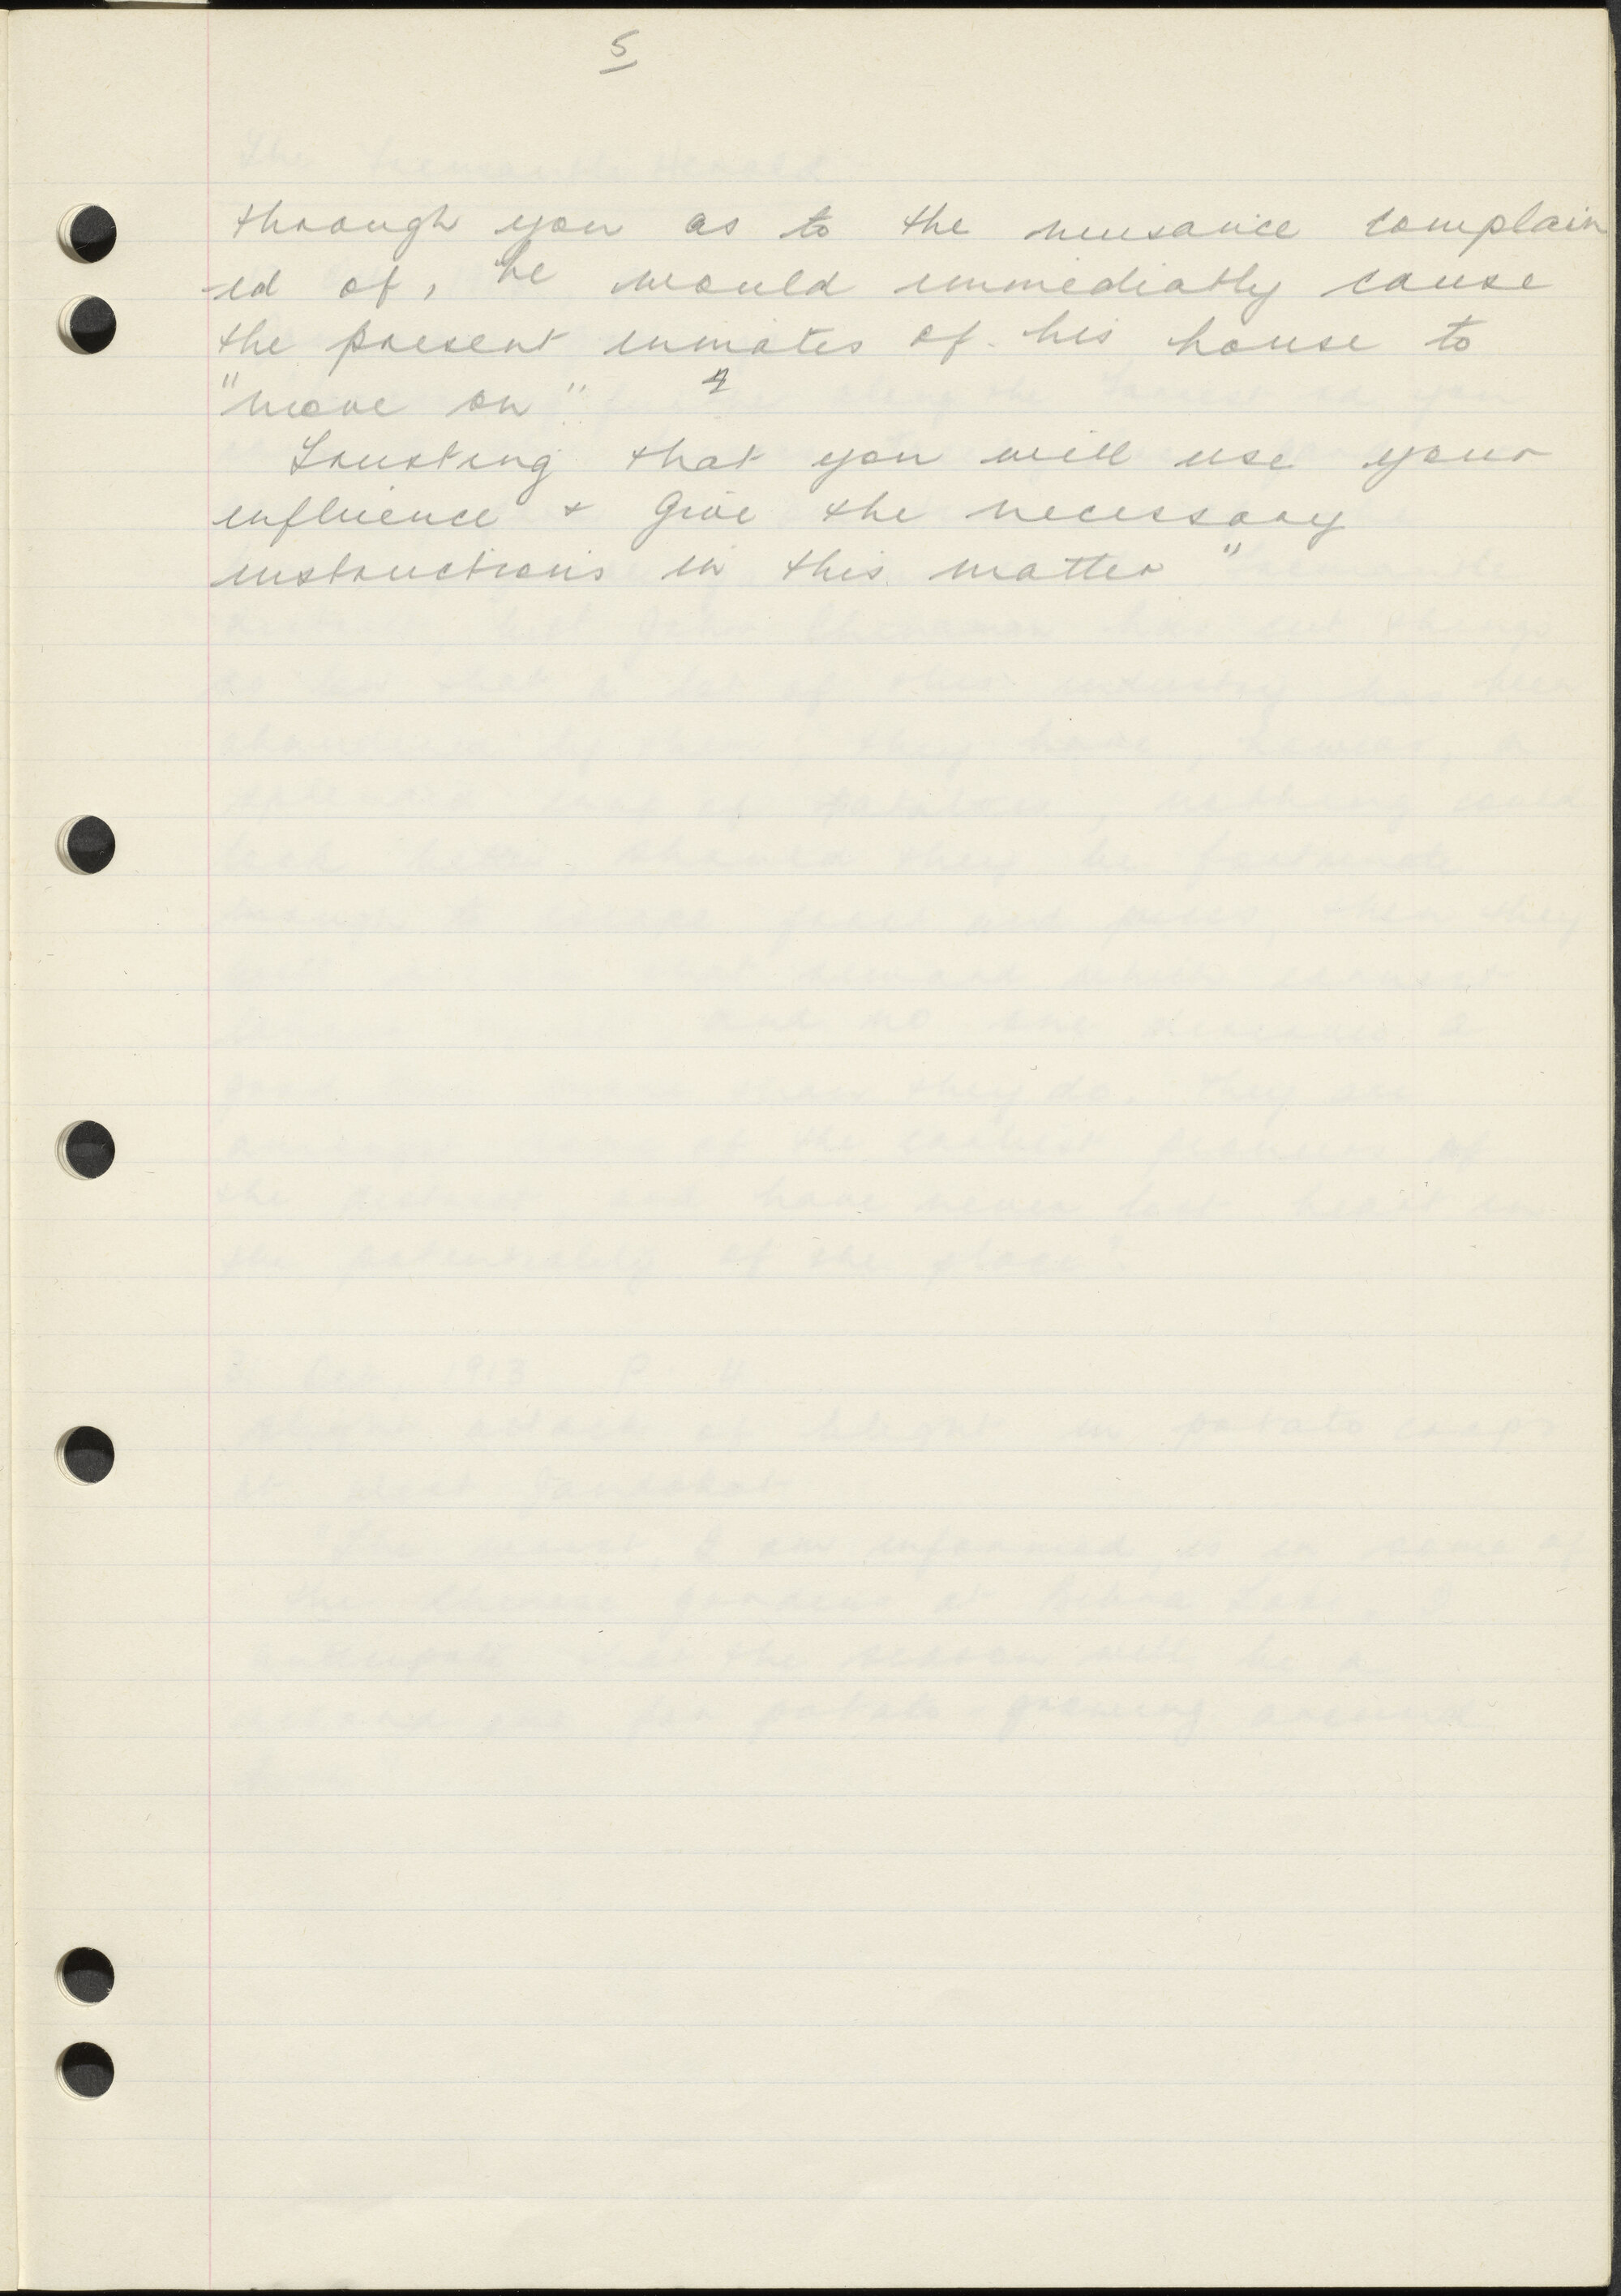 5
through you as to the nuisance complain
-ed of, he would immediatly cause
the present inmates of his house to
"move on"
Trusting that you will use your
influence + Give the necessary
instructions in this matter"